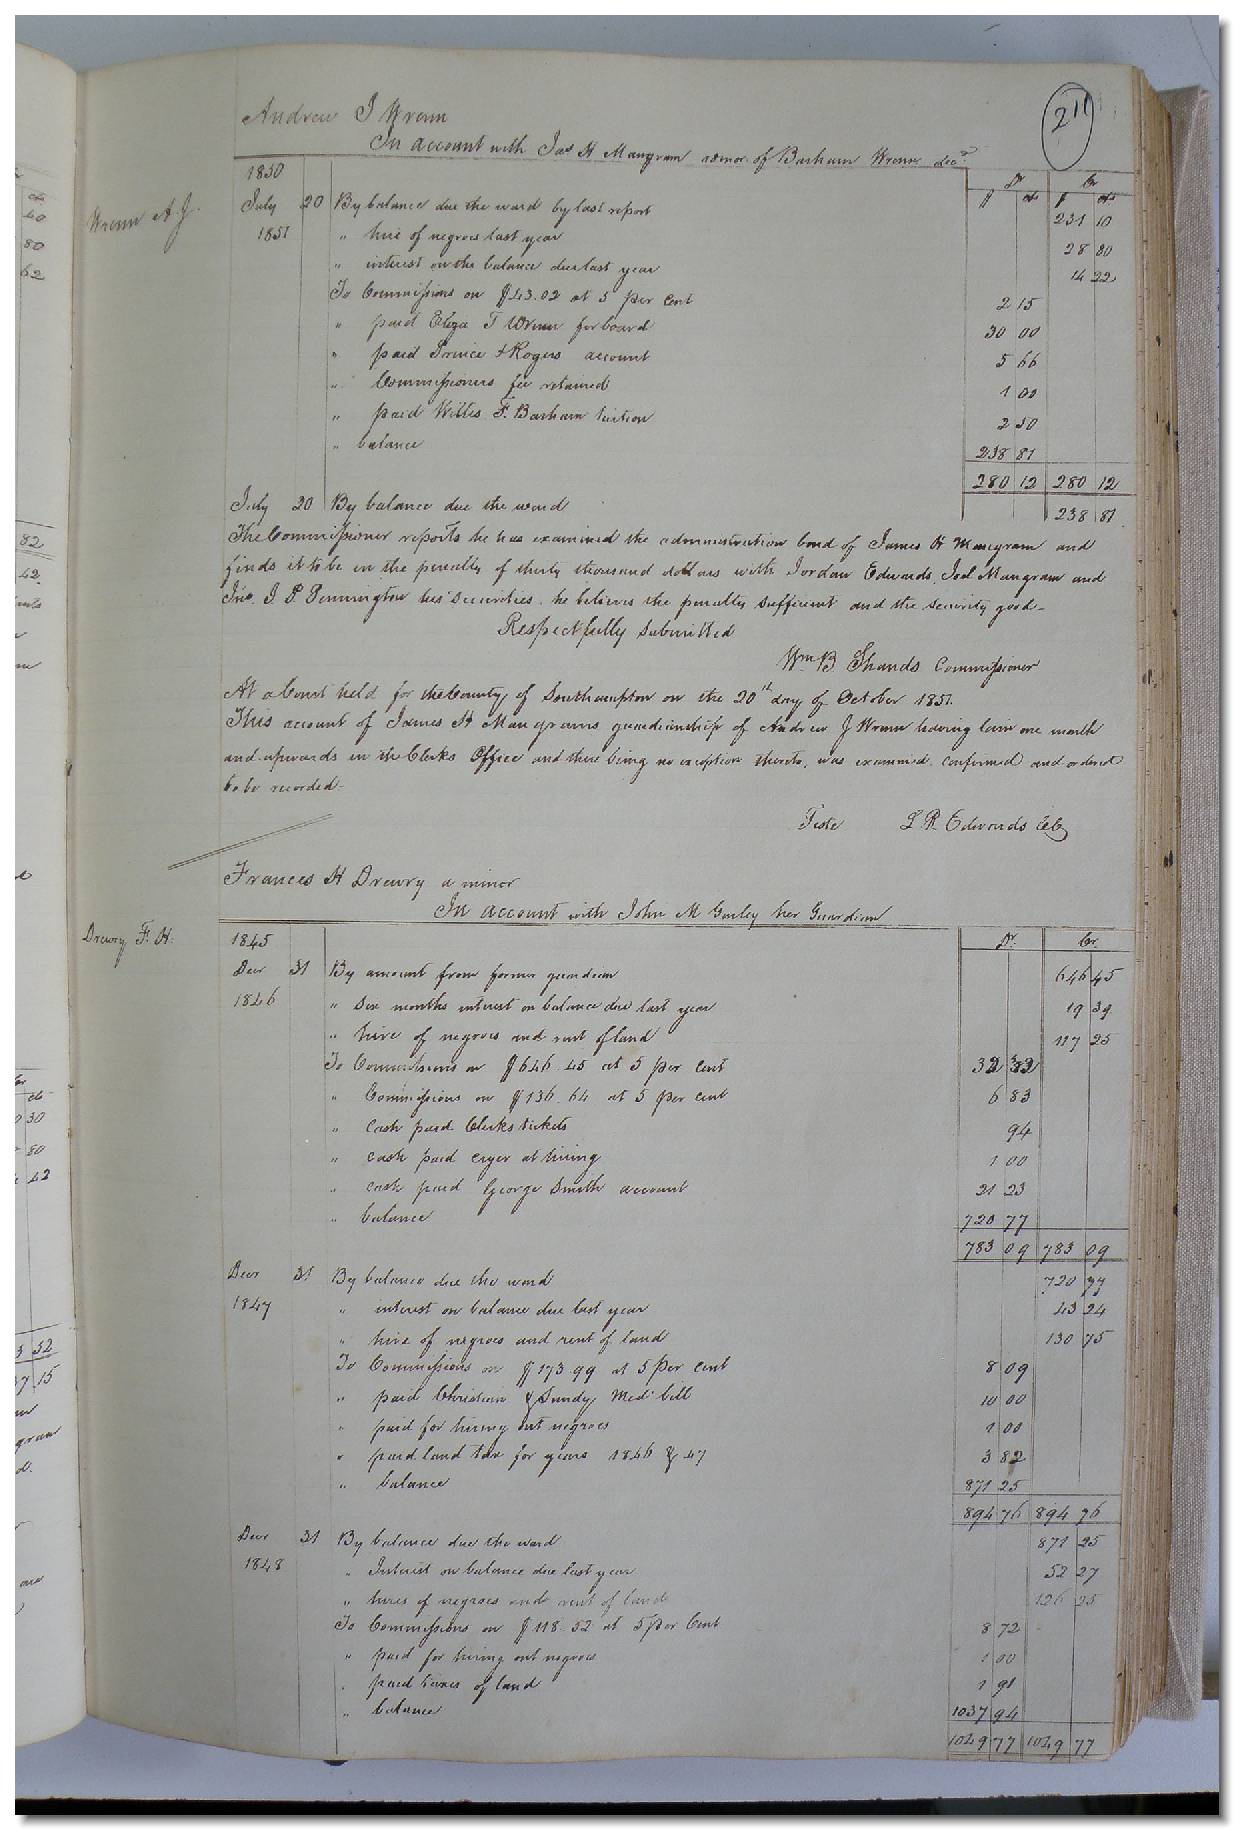 211
Andrew J Wrenn
In account with Jas H Mangram admor. of Barham Wrenn decd.
Wrenn A. J.
1850 Dr Cr
$ cts $ cts
July 20 By balance due the ward by last report 231 10
1851 " hire of negroes last year 28 80
" interest on the balance due last year 14 22
To Commissions on $43.02 at 5 per cent 2 15
" paid Eliza T Wrenn for board 30 00
" paid Prince & Rogers account 5 66
" Commissioners fee retained 1 00
" paid Willis F. Barham tuition 2 50
" balance 238 81
280 12 280 12
July 20 By balance due the ward 238 81
The Commissioner reports he has examined the administration bond of James H Mangram and
finds it to be in the penalty of thirty thousand dollars with Jordan Edwards, Joel Mangram and
Jno. J. P. Pennington his securities. he believes the penalty sufficient and the security good-
Respectfully submitted
Wm B Shands Commissioner
At a Court held for the County of Southampton on the 20th day of October 1851.
This account of James H Mangrams guardianship of Andrew J Wrenn having lain one month
and upwards in the Clerks Office and there being no exception thereto, was examined. confirmed and ordered
to be recorded-
Teste L R Edwards CC
Frances H Drewry a minor
In account with John M Gurley her Guardian
Drewry F. H.
1845 Dr. Cr.
Decr 31 By amount from former guardian 646 45
1846 " Six months interest on balance due last year 19 39
" hire of negroes and rent of land 117 25
To Commissions on $646.45 at 5 per cent 32 32
" Commissions on $136 64 at 5 per cent 6 83
" Cash paid Clerks tickets 94
" cash paid cryer at hiring 1 00
" cash paid George Smith account 21 23
" balance 720 77
783 09 783 09
Decr 31 By balance due the ward 720 77
1847 " interest on balance due last year 43 24
" hire of negroes and rent of land 130 75
To Commissions on $173 99 at 5 per cent 8 09
" paid Christian & Gundy Med: bill 10 00
" paid for hiring out negroes 1 00
" paid land tax for years 1846 & 47 3 82
" balance 871 25
894 76 894 76
Decr 31 By balance due the ward 871 25
1848 " Interest on balance due last year 52 27
" hires of negroes and rent of land 126 25
To Commissions on $118.52 at 5 per Cent 8 72
" paid for hiring out negroes 1 00
" paid taxes of land 1 91
" balance 1037 94
1049 77 1049 77